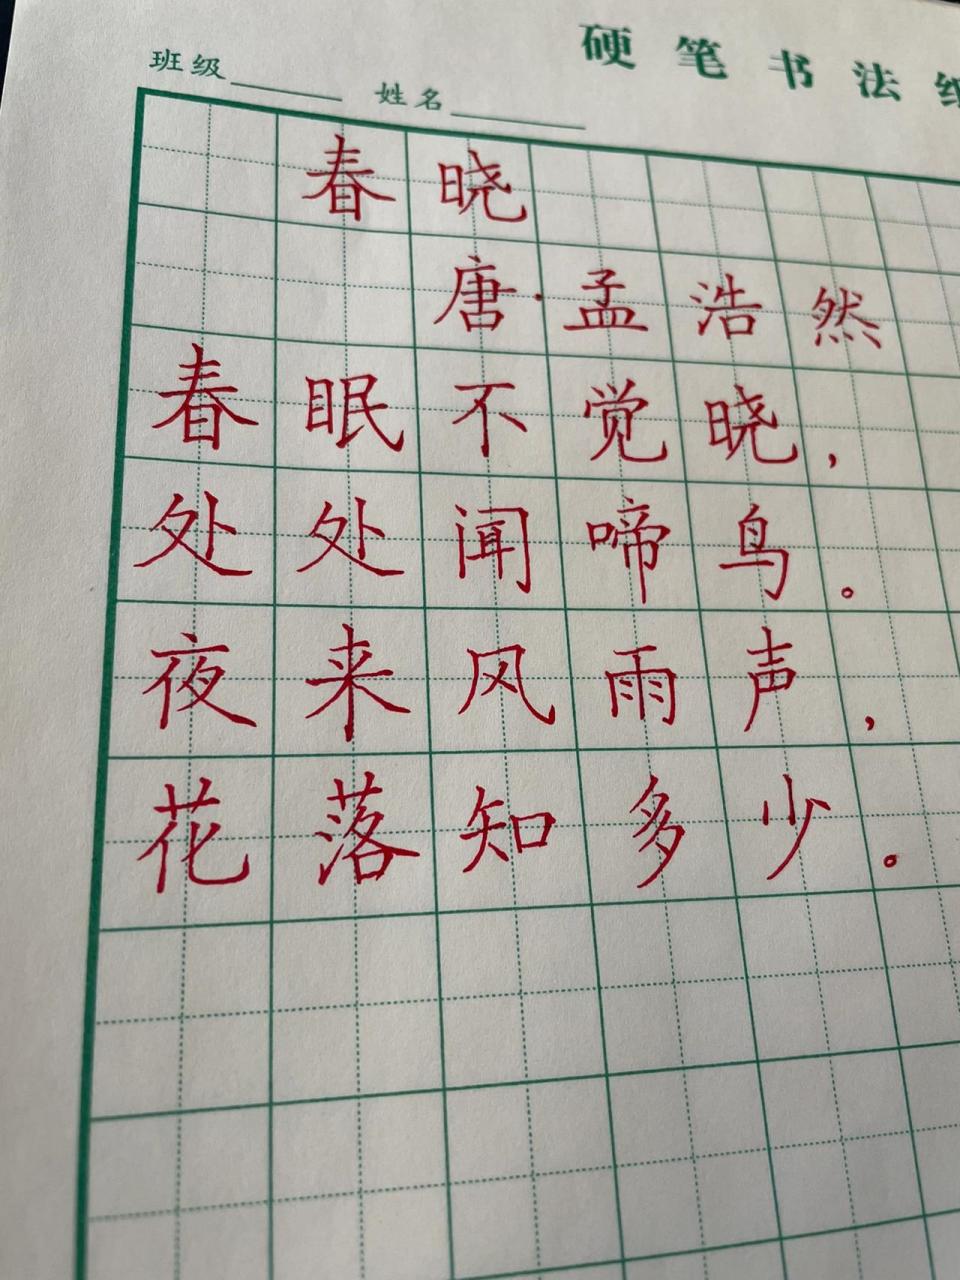 硬笔书法纸
班级 姓名
春晓
唐·孟浩然
春眠不觉晓，
处处闻啼鸟。
夜来风雨声，
花落知多少。